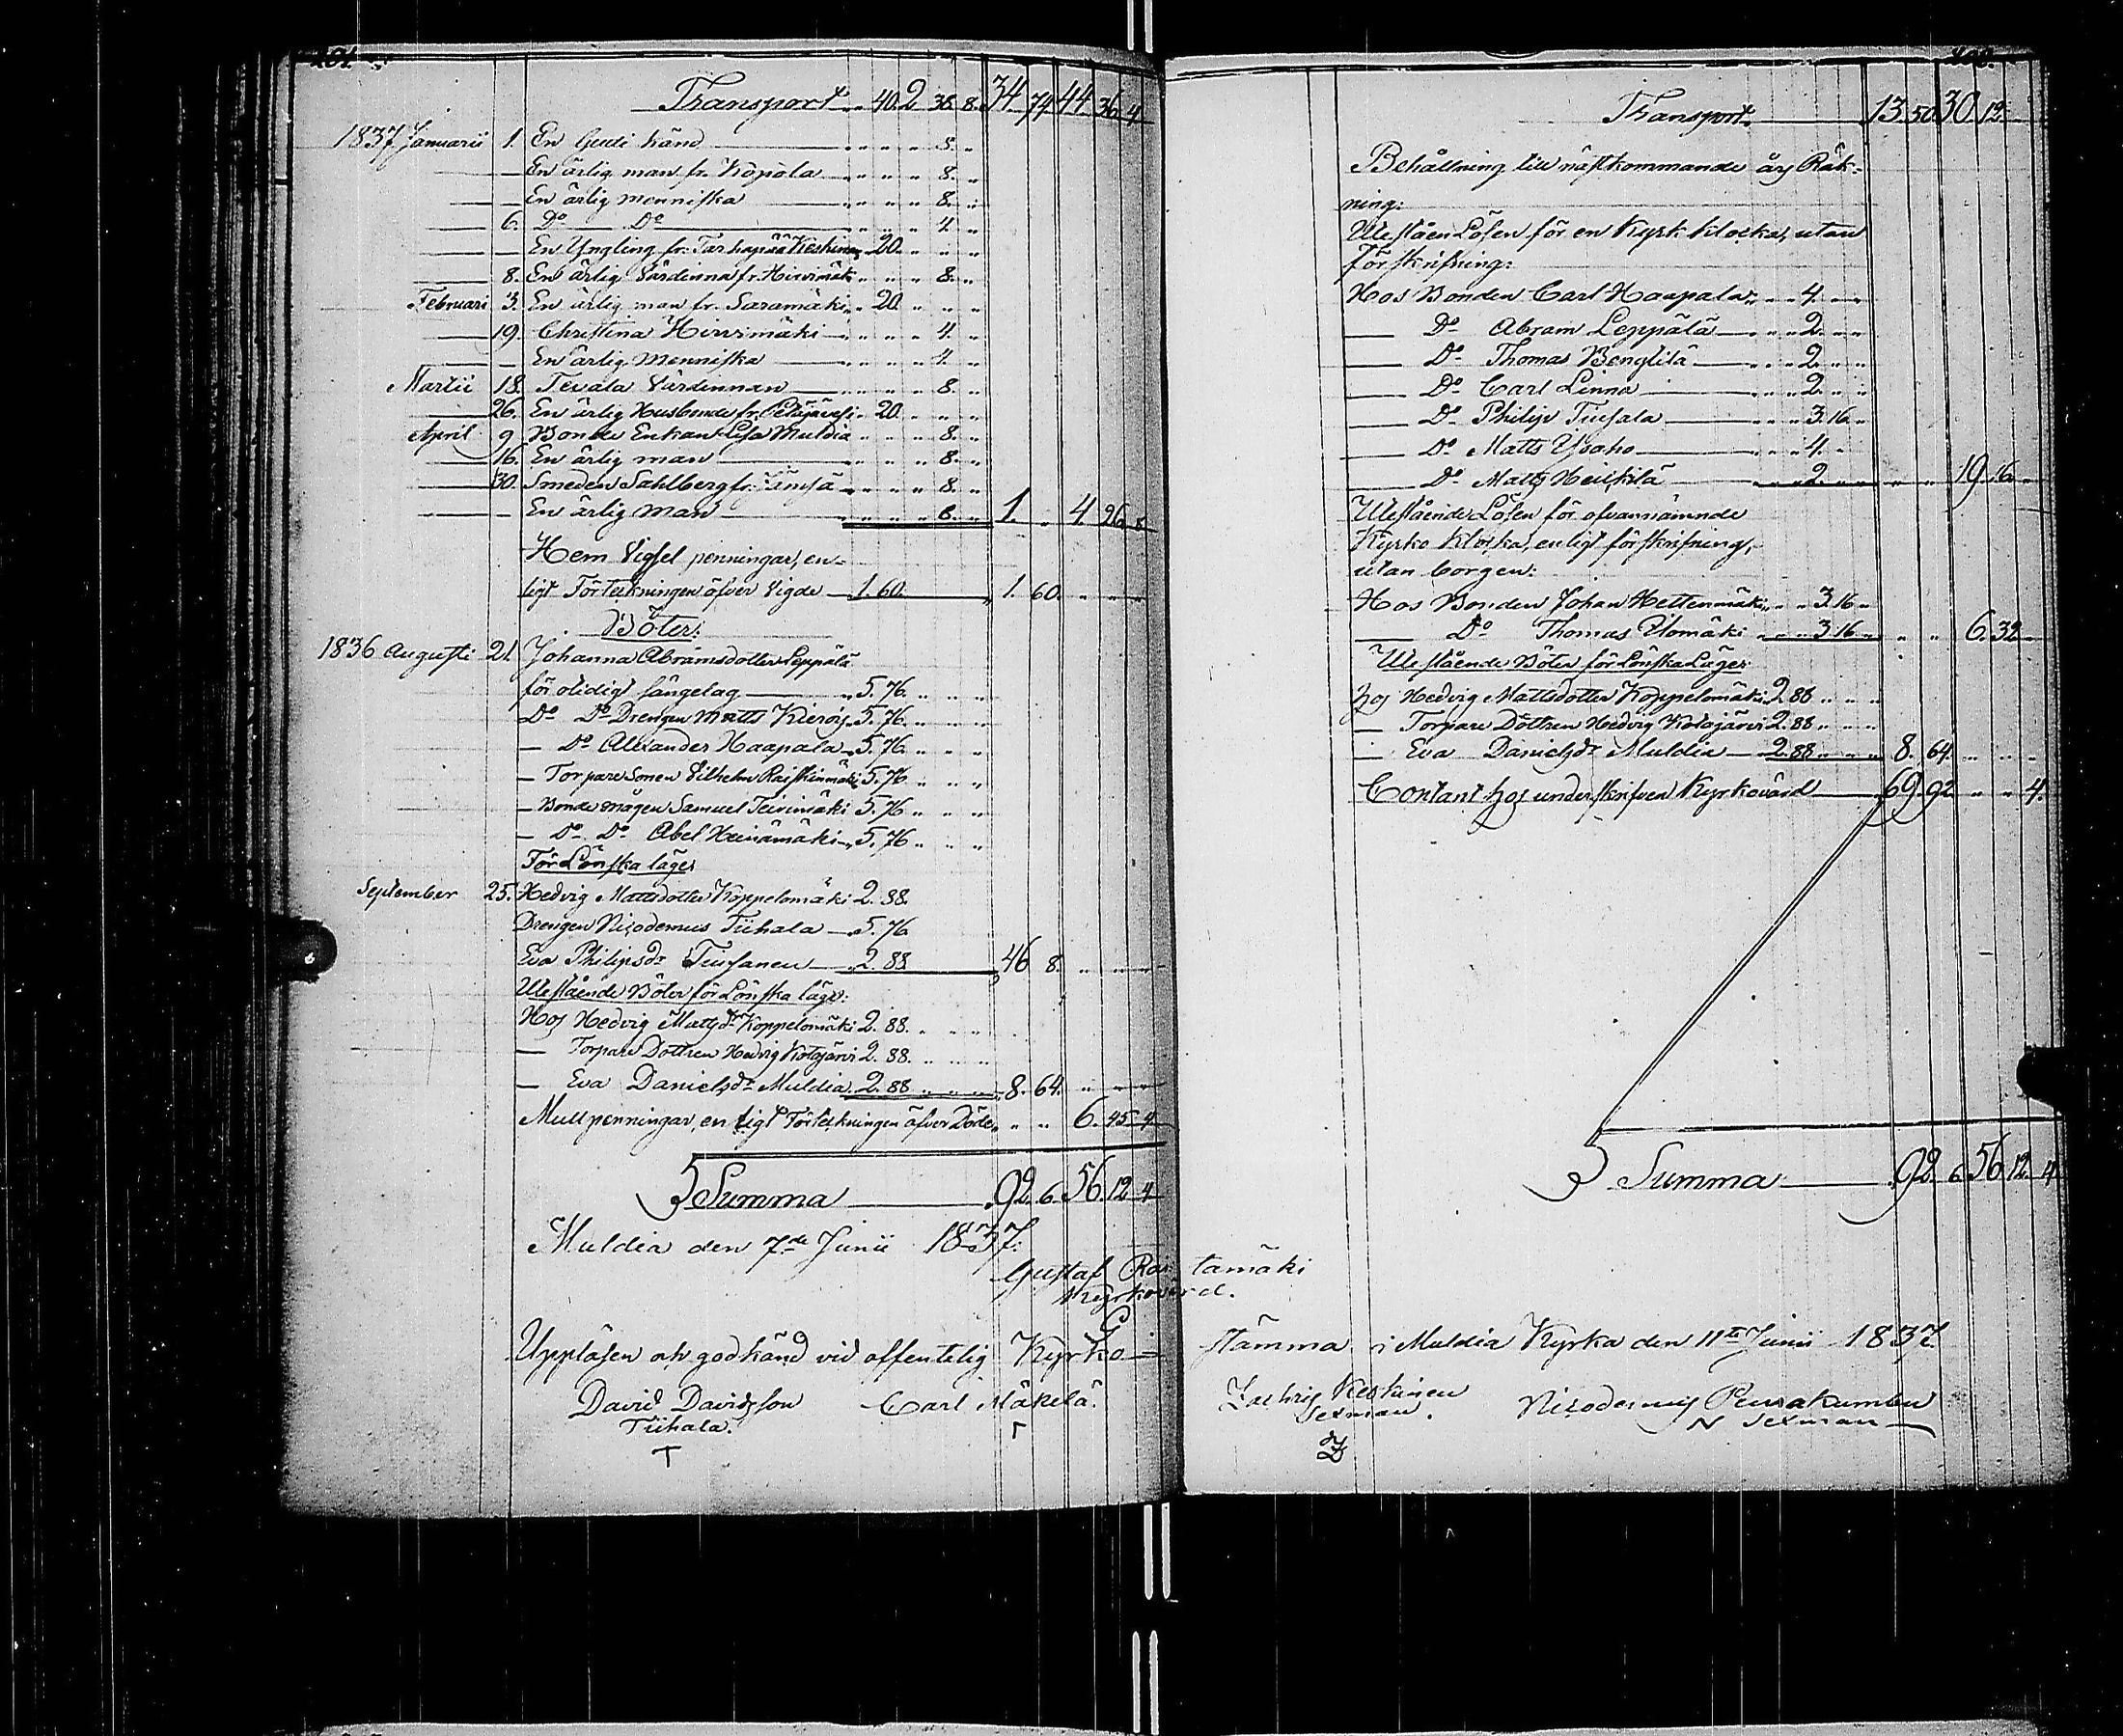 Transport „ 40. 2 38. 8. 34. 74 44. 36. 4
1837 Januarii 1. En Gudi känd „ „ „ „ 8. „
— En ärlig man fr. Kopola „ „ „ „ 8. „
— En ärlig menniska „ „ „ „ 8. „
6. Do Do „ „ „ „ 4. „
— En Yngling fr. Tarhapää Keskinen „ 20. „ „ „ „
8. En ärlig Värdinna fr. Hirvimäk „ „ „ „ 8. „
Februari 3. En ärlig man fr. Saramäki „ 20. „ „ „ „
19. Christina Hirvimäki „ „ „ „ 4. „
— En ärlig Menniska „ „ „ „ 4. „
Martii 18. Tevala Värdinnan „ „ „ „ 8. „
26. En ärlig Husbonde fr. Petäjävesi „ 20. „ „ „ „
April 9 Bonde Enkan Lisa Muldia „ „ „ „ 8. „
16. En ärlig man „ „ „ „ 8. „
30. Smeden Sahlberg fr. Jämsä „ „ „ „ 8. „
— En ärlig man „ „ „ „ 8. „ 1. „ 4. 26. 8
Hem Vigsel penningar, en-
ligt Förteckningen öfver Vigde 1. 60. „ 1. 60. „ „ „
Böter:
1836 Augusti 21. Johanna Abramsdotter Leppälä
för otidigt sängelag „ 5. 76. „ „ „
Do Do Drengen Matts Kieroj 5. 76. „ „ „
— Do Alexander Haapala 5. 76. „ „ „
— Torpare Sonen Vilhelm Raiskinmäki 5. 76 „ „ „
— Bonde mågen Samuel Teerimäki 5. 76 „ „ „
— Do Do Abel Heinämäki „ 5. 76 „ „ „
För Lönska läger
September 25. Hedvig Mattsdotter Koppelomäki 2. 88.
Drengen Nicodemus Tiihala 5. 76
Eva Philipsdr Tiusanen 2. 88. 46 8. „ „ „
Utestående Böter för Lönska läge:
Hos Hedvig Mattsdr Koppelomäki 2. 88. „ „ „
— Torpare Dottren Hedvig Kotajärvi 2. 88. „ „ „
— Eva Danielsdr Muldia 2. 88 „ „ „ 8. 64. „ „ „
Mull penningar, en ligt Förteckningen öfver Döde „ „ „ 6. 45. 4
Summa 92. 6. 56. 12. 4
Muldia den 7de Junii 1837.
Gustaf Raistamäki
Kyrkovärd.
Transport 13. 50 30 12.
Behållning till nästkommande års Räk-
ning:
Utestå en Lösen för en Kyrk klocka, utan
förskrifning:
Hos Bonden Carl Haapala „ „ 4. „ „
— Do Abram Leppälä „ „ 2. „ „
— Do Thomas Bengtilä „ „ 2. „ „
— Do Carl Linna „ „ 2. „ „
— Do Philip Tiusala „ „ 3. 16. „
— Do Matts Ysaho „ „ 4. „
— Do Matts Heickilä „ „ 2. „ „ „ „ 19. 16. „
Utestående Lösen för ofvannämnde
Kyrko klocka, enligt förskrifning,
utan borgen:
Hos Bonden Johan Hettenmäki „ „ 3. 16 „
— Do Thomas Utomäki „ „ 3. 16 „ „ „ 6. 32
Utestående Böter för Lönska Läger
hos Hedvig Mattsdotter Koppelomäki 2. 88 „ „ „
— Torpare Dottren Hedvig Kotajärvi 2. 88 „ „ „
— Eva Danielsdr Muldia 2. 88 „ „ „ 8. 64. „ „ „
Contant hos underskrifven Kyrkovärd 69. 92 „ „ 4.
Summa 92. 6 56. 12. 4
Uppläsen och godkänd vid offentelig Kyrko- stämma i Muldia Kyrka den 11te Junii 1837.
David Davidsson Carl Mäkelä. Zachris Keskinen Nicodemus
Tiihala. Sexman. Sexman